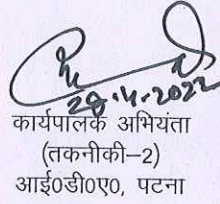 28.4.2022
कार्यपालक अभियंता
(तकनीकी–2)
आई०डी०ए०, पटना